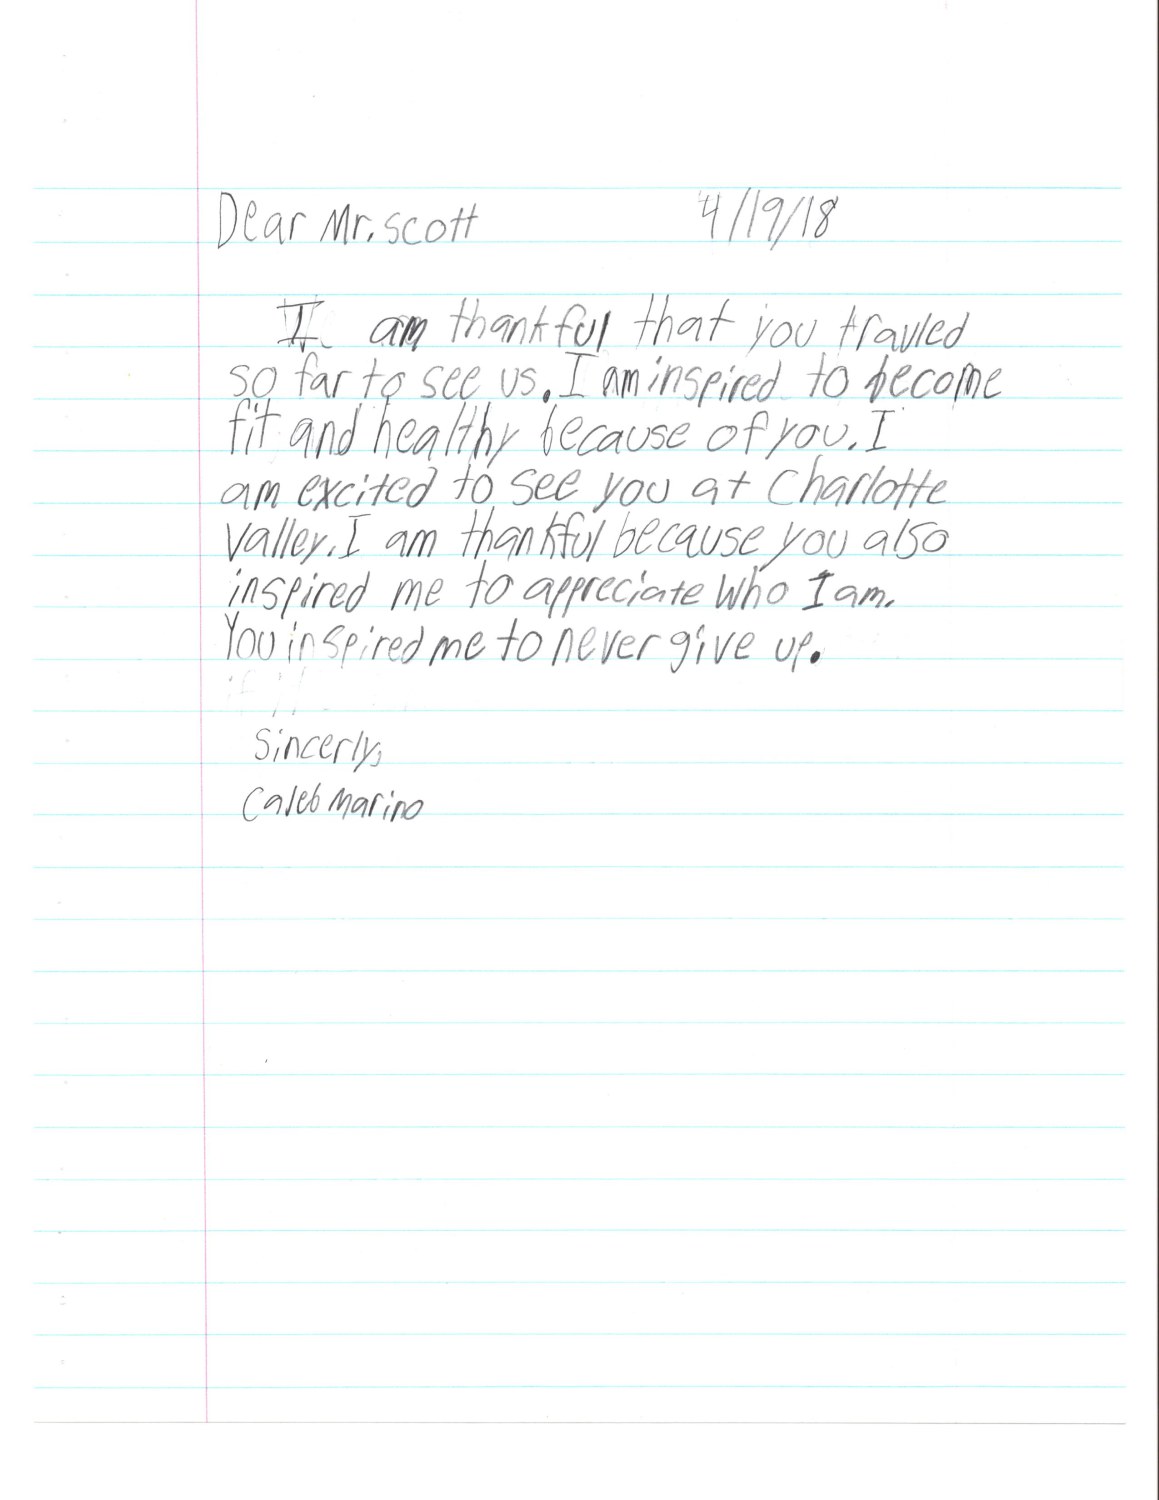 Dear Mr. Scott 4/19/18
I am thankful that you travled
so far to see us. I am inspired to become
fit and healthy because of you. I
am excited to see you at Charlotte
Valley. I am thankful because you also
inspired me to appreciate Who I am.
You inspired me to never give up.
Sincerly,
Caleb Marino